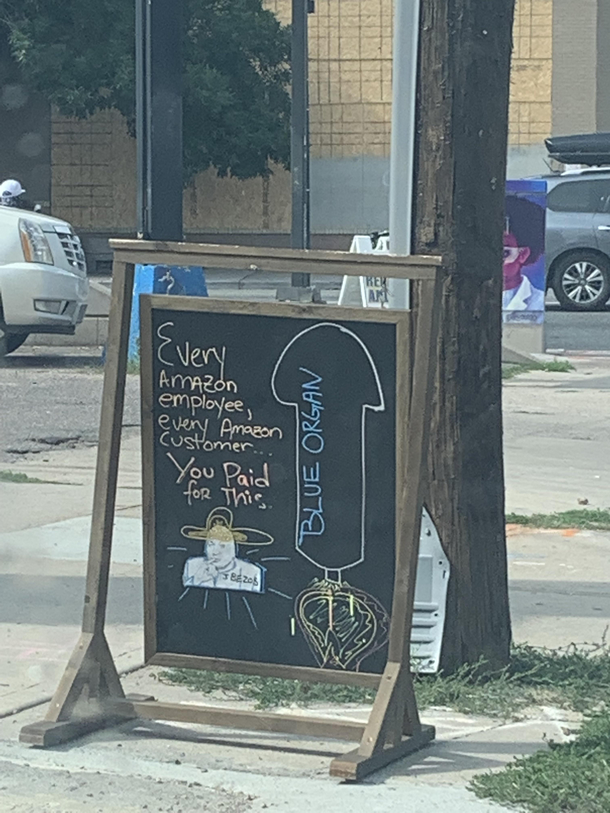 Every
Amazon
employee,
every Amazon
Customer...
You Paid
for This..
J BEZOS
BLUE ORGAN
ART